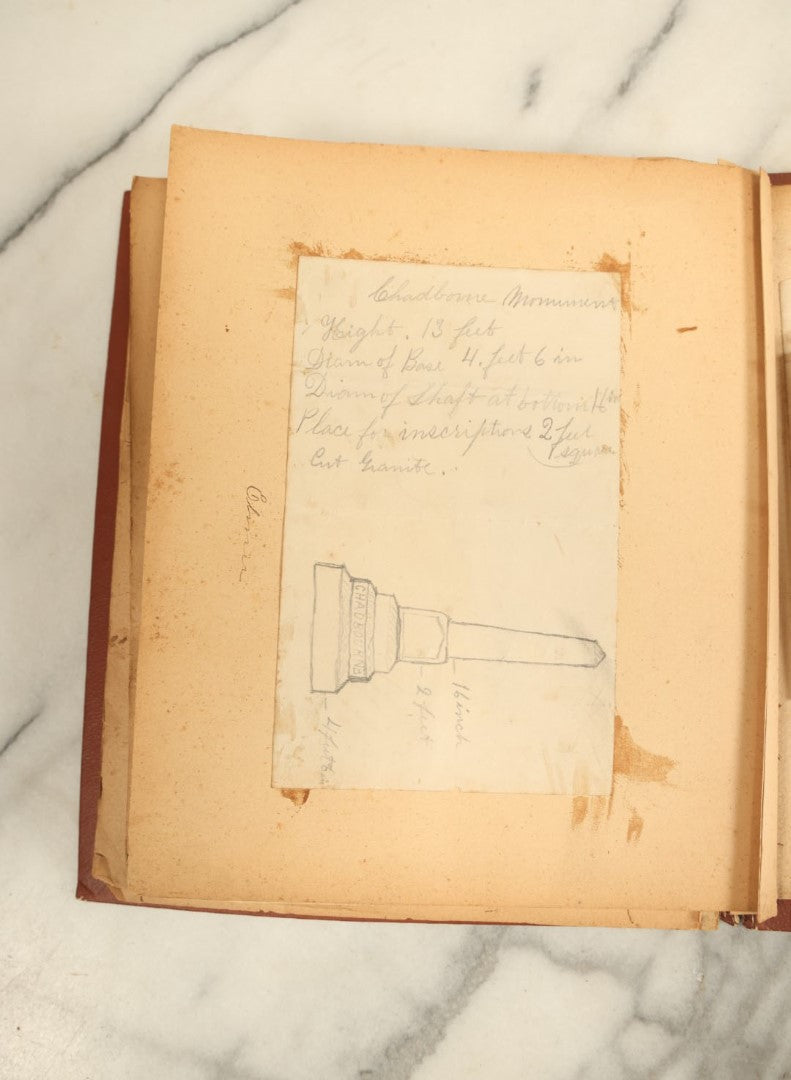 Chadborne Monument
Hight. 13 feet
Diam of Base 4. feet 6 in
Diam of Shaft at bottom 16 in
Place for inscriptions 2 feet
square
Cut Granite.
CHADBOURNE
16 inch
2 feet
4 feet 6 in